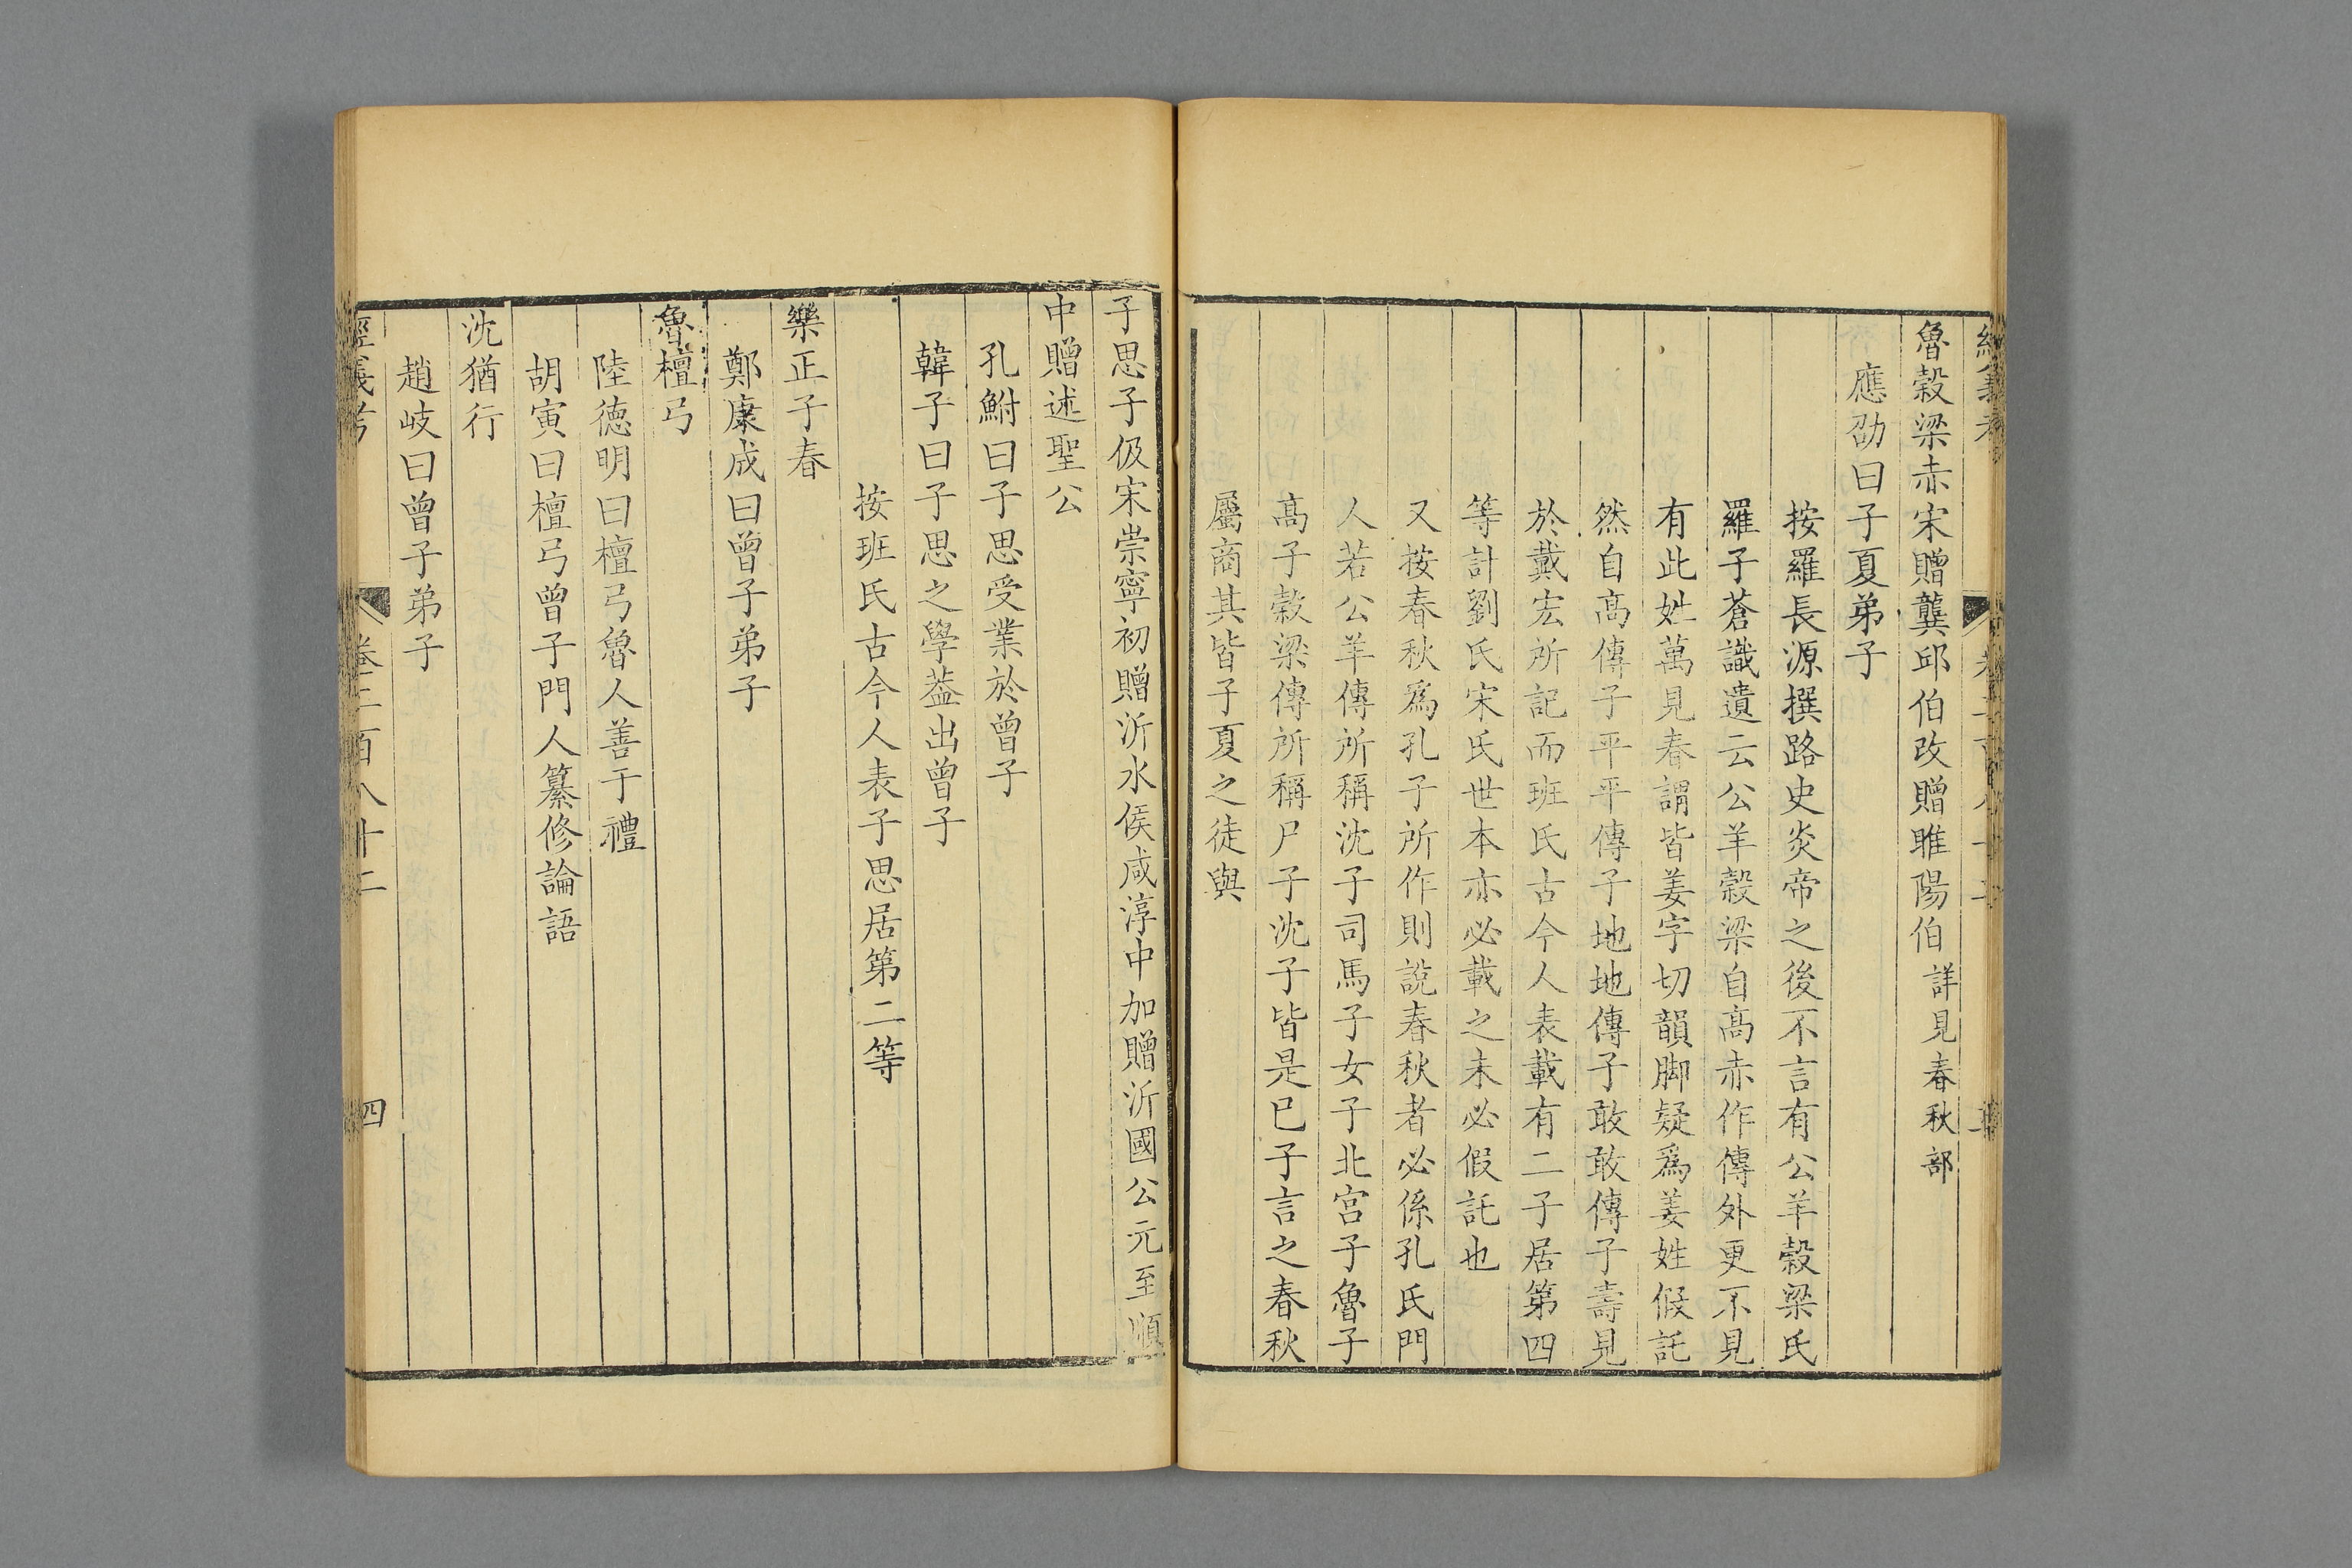 魯穀梁赤宋贈龔邱伯改贈睢陽伯詳見春秋部
應劭曰子夏弟子
按羅長源撰路史炎帝之後不言有公羊穀梁氏
羅子蒼識遺云公羊穀梁自高赤作傳外更不見
有此姓萬見春謂皆姜字切韻脚疑爲姜姓假託
然自高傳子平平傳子地地傳子敢敢傳子壽見
於戴宏所記而班氏古今人表載有二子居第四
等計劉氏宋氏世本亦必載之未必假託也
又按春秋爲孔子所作則說春秋者必係孔氏門
人若公羊傳所稱沈子司馬子女子北宮子魯子
高子穀梁傳所稱尸子沈子皆是已子言之春秋
屬商其皆子夏之徒與
子思子伋宋崇寧初贈沂水侯咸淳中加贈沂國公元至順
中贈述聖公
孔鮒曰子思受業於曾子
韓子曰子思之學葢出曾子
按班氏古今人表子思居第二等
樂正子春
鄭康成曰曾子弟子
魯檀弓
陸德明曰檀弓魯人善于禮
胡寅曰檀弓曾子門人纂修論語
沈猶行
趙岐曰曾子弟子
經義考 卷二百八十二 四